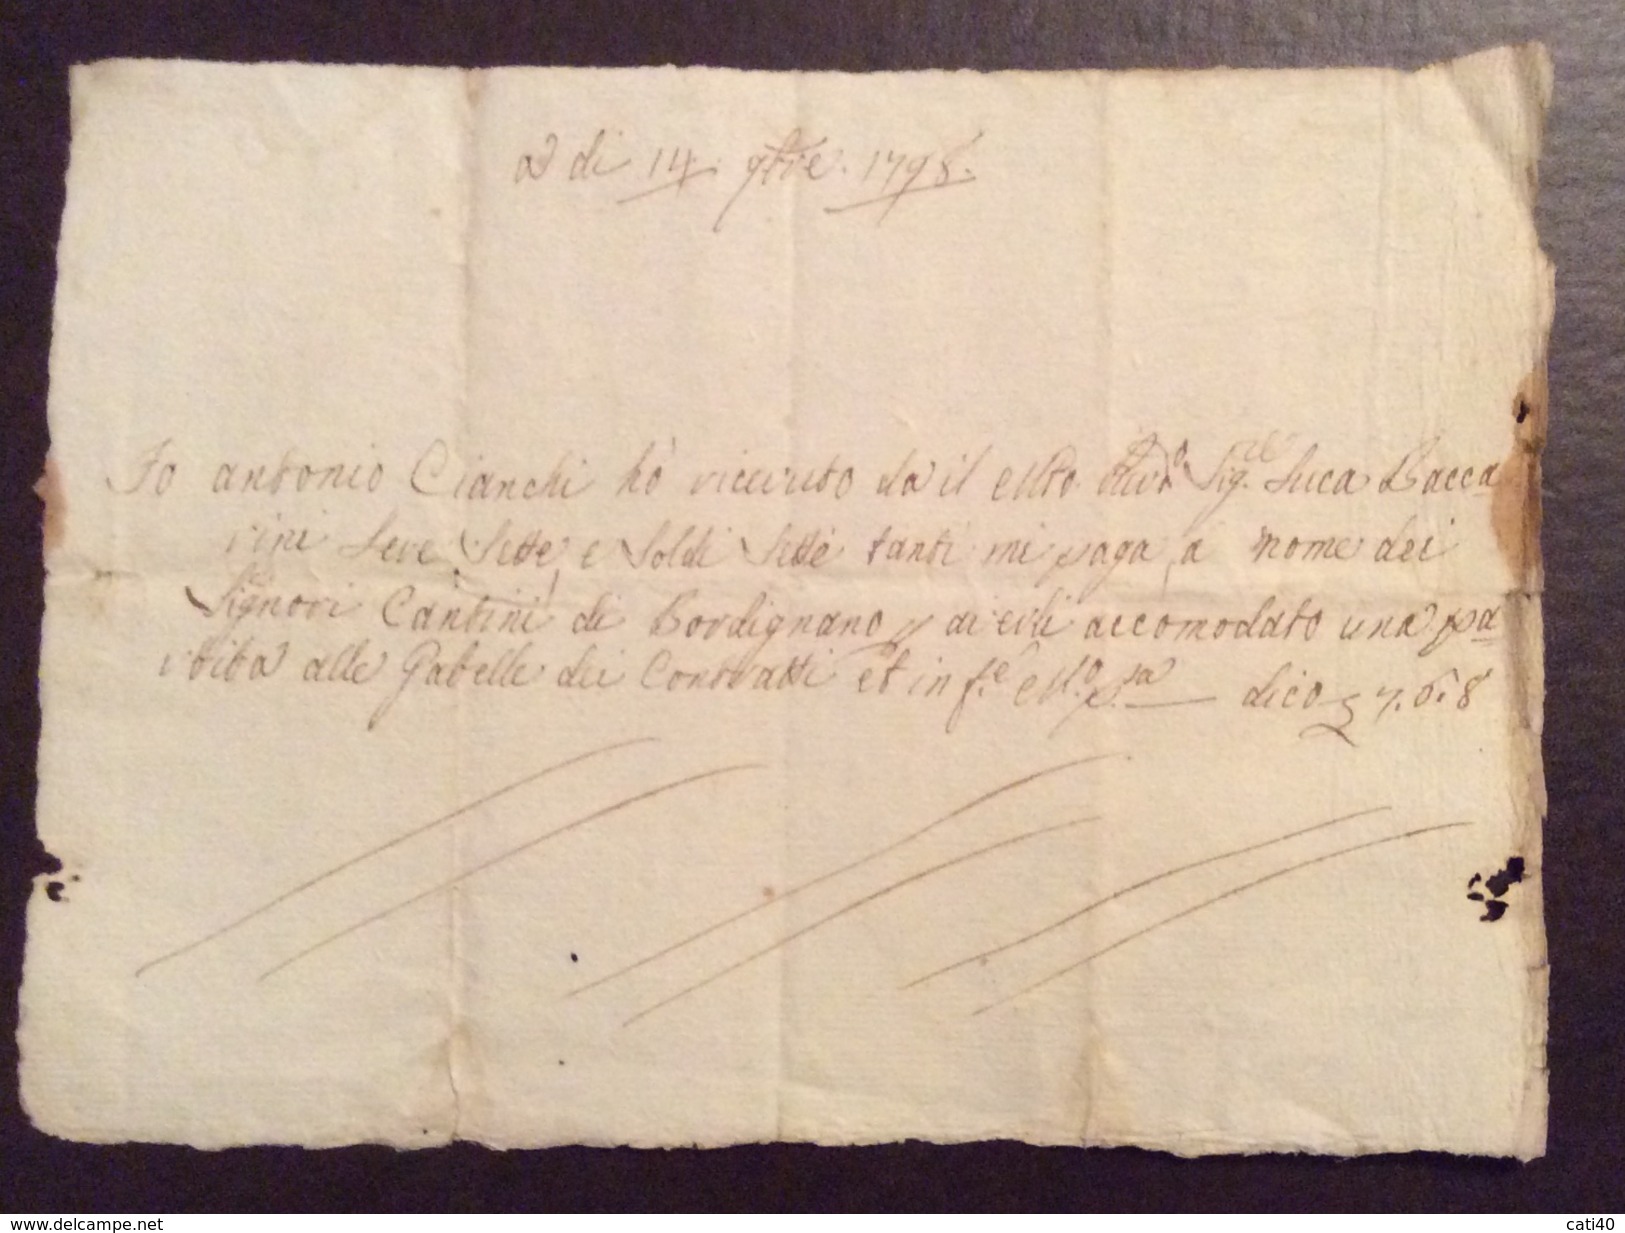 A di 14. 9bre. 1798.
Io Antonio Cianchi hò ricevuto da il Mto Revdo Sigre Luca Bacca
rini Lere Sette, e Soldi Sette tanti mi paga, a nome dei
Signori Cantini di Bordignano p averli accomodato una pa
rtita alle Gabelle dei Contratti et in fe Mo. pa — dico £ 7. 6. 8
www.delcampe.net
cati40